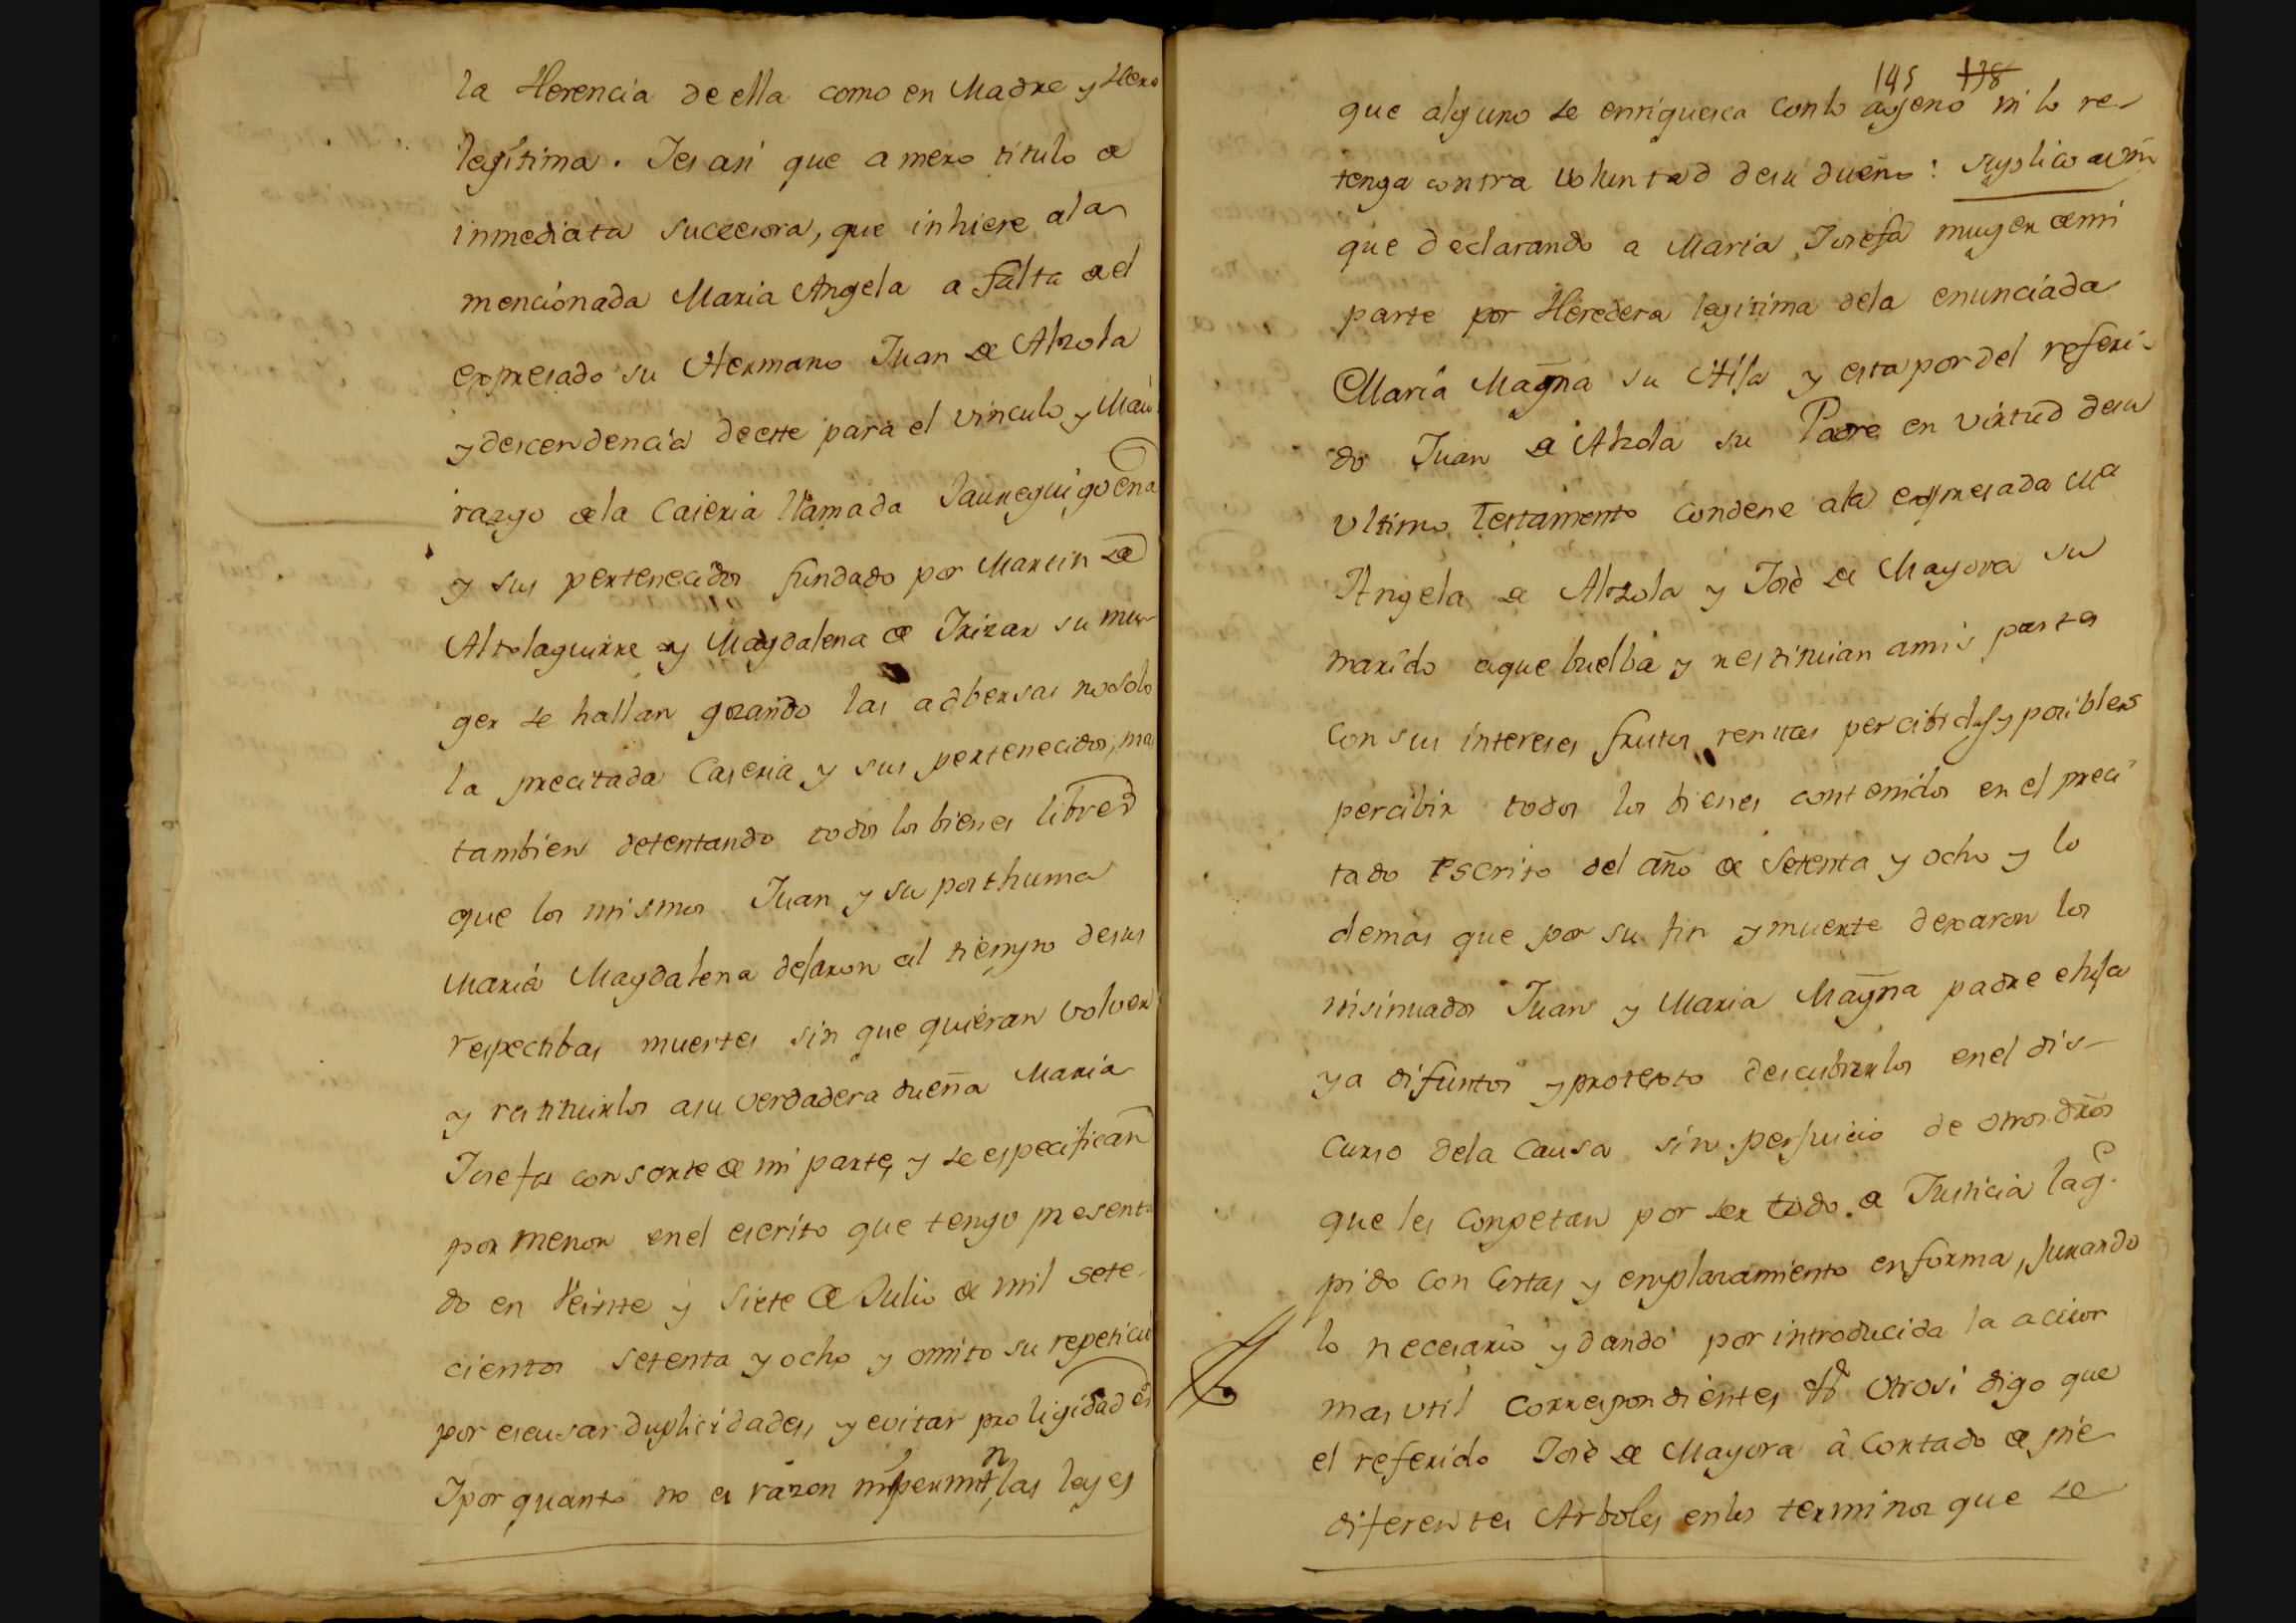 la Herencia de ella como en Madre y Here
legítima. Ies asi que a mero titulo de
inmediata succesora, que inhiere ala
mencionada Maria Angela a falta del
expresado su Hermano Juan de Alzola
y descendencia de este para el vinculo y Mai
razgo de la Caseria llamada Jaureguigoena
y sus pertenecidos fundado por Martin de
Altolaguirre y Magdalena de Irizar su mu
ger se hallan gozando las adbersas no solo
la precitada Caseria y sus pertenecidos, mas
tambien detentando todos los bienes libres
que los mismos Juan y su posthuma
Maria Magdalena dejaron al tiempo desus
respectibas muertes sin que quieran volver
y restituirlos asu verdadera dueña Maria
Josefa consorte de mi parte, y se especifican
por menor en el escrito que tengo presenta
do en Veinte y Siete de Julio de mil sete
cientos setenta y ocho y omito su repetició
por escusar duplicidades, y evitar proligidades
Ipor quanto no es razon ni permitn las leyes
145 138
que alguno se enriquesca con lo ageno ni lo re-
tenga contra voluntad desu dueño: suplico avm
que declarando a Maria Josefa muger de mi
parte por Heredera legitima dela enunciada
Maria Magna su Hija y esta por del referi-
do Juan de Alzola su Padre en virtud desu
Ultimo Testamento condene ala expresada Ma
Angela de Alzola y José de Mayora su
marido aque buelba y restituian amis partes
con sus intereses frutos rentas percibidas y posibles
percibir todos los bienes contenidos en el preci
tado escrito del año de Setenta y ocho y lo
demas que por su fin y muerte dexaron los
insinuados Juan y Maria Magna padre e hija
ya difuntos y protexto descubrirlos en el dis-
curso dela Causa sin perjuicio de otros dros
que les conpetan por ser todo de Justicia laq.
pido con Costas y emplazamiento en forma, jurando
lo necesario y dando por introducida la accion
mas util correspondientes Otrosi digo que
el referido José de Mayora à Cortado de pie
diferentes Arboles enlos terminos que se